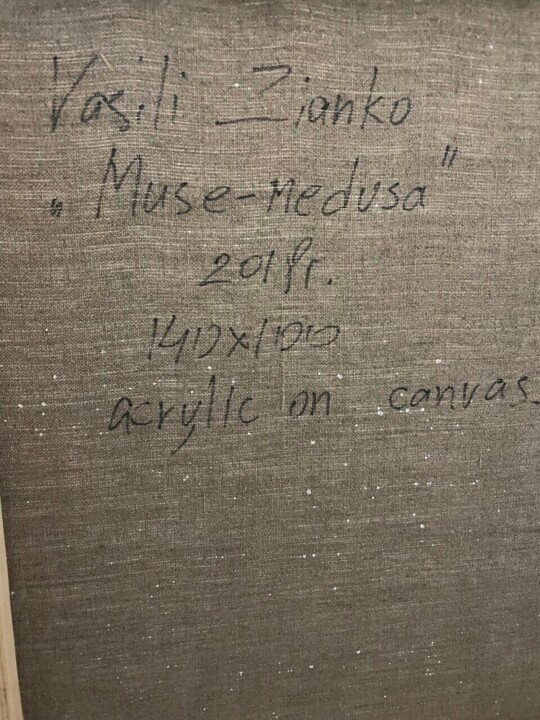 Vasili Zianko
„Muse-medusa"
140x100
acrylic on canvas.